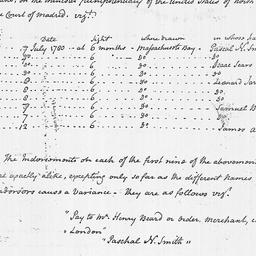 on the Minister plenipotentiary of the United States of North
e Court of Madrid. vizt.
Date Sight where drawn in whose fa
7 July 1780 at 6 months Massachusetts Bay Paschal N. Sm
7 Do 6 Do Do
7 Do 6 Do Do Isaac Sears
7 Do 6 Do Do
7 Do 6 Do Do Leonard Jar
7 Do 6 Do Do
7 Do 6 Do Do Samuel B
7 Do 6 Do Do
12 Do 6 Do Do James a
The Indorsements on each of the first nine of the abovement
exactly alike, excepting only so far as the different names
ndorsors cause a Variance. They are as follows vizt.
"Pay to Mr. Henry Beard or order, Merchant, i
"London"
"Paschal N. Smith"